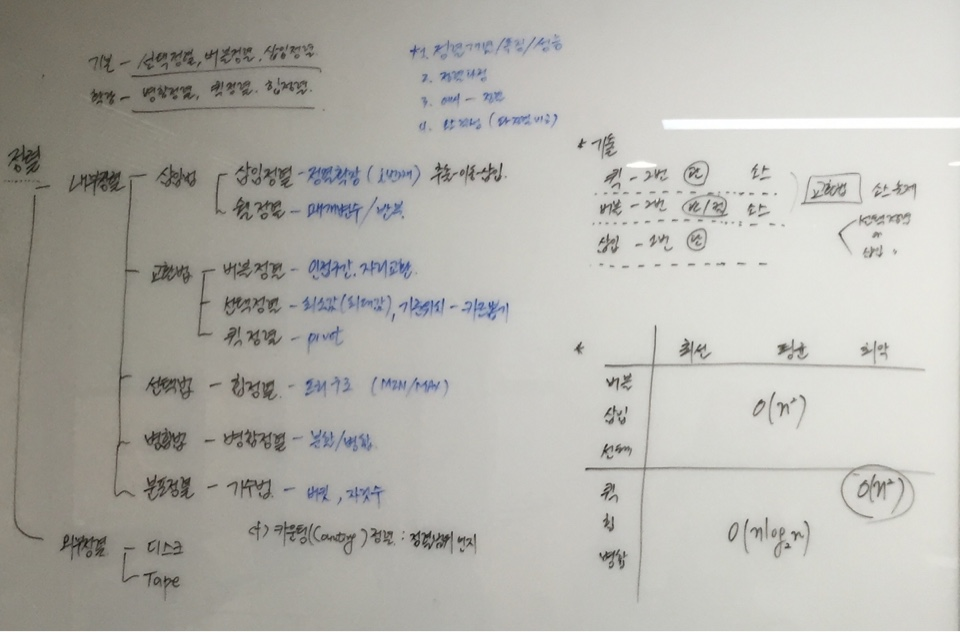 기본 - 선택정렬, 버블정렬, 삽입정렬.
확장 - 병합정렬, 퀵정렬, 힙정렬.
*1. 정렬개념/특징/성능
2. 정렬과정
3. 예시 -
4. 안정성
정렬
내부정렬 - 삽입법 - 삽입정렬 - 정렬확장 (i번째) 추출-이동-삽입.
쉘정렬 - 매개변수/반복
교환법 - 버블정렬 - 인접구간, 자리교환.
선택정렬 - 최소값(최대값), 기준위치 - 카드뽑기
퀵정렬 - pivot
선택법 - 힙정렬 - 트리구조 (MIN/MAX)
병합법 - 병합정렬 - 분할/병합
분포정렬 - 기수법 - 버킷, 자릿수
외부정렬 - 디스크
Tape
(+) 카운팅(Counting) 정렬 : 정렬범위 인지
* 기출
퀵 - 2번 단 소스
버블 - 2번 소스
삽입 - 1번 단
교환법 소스
선택정렬
or
삽입.
* 최선 평균 최악
버블
삽입 O(n²)
선택
퀵 O(n²)
힙 O(nlog₂n)
병합